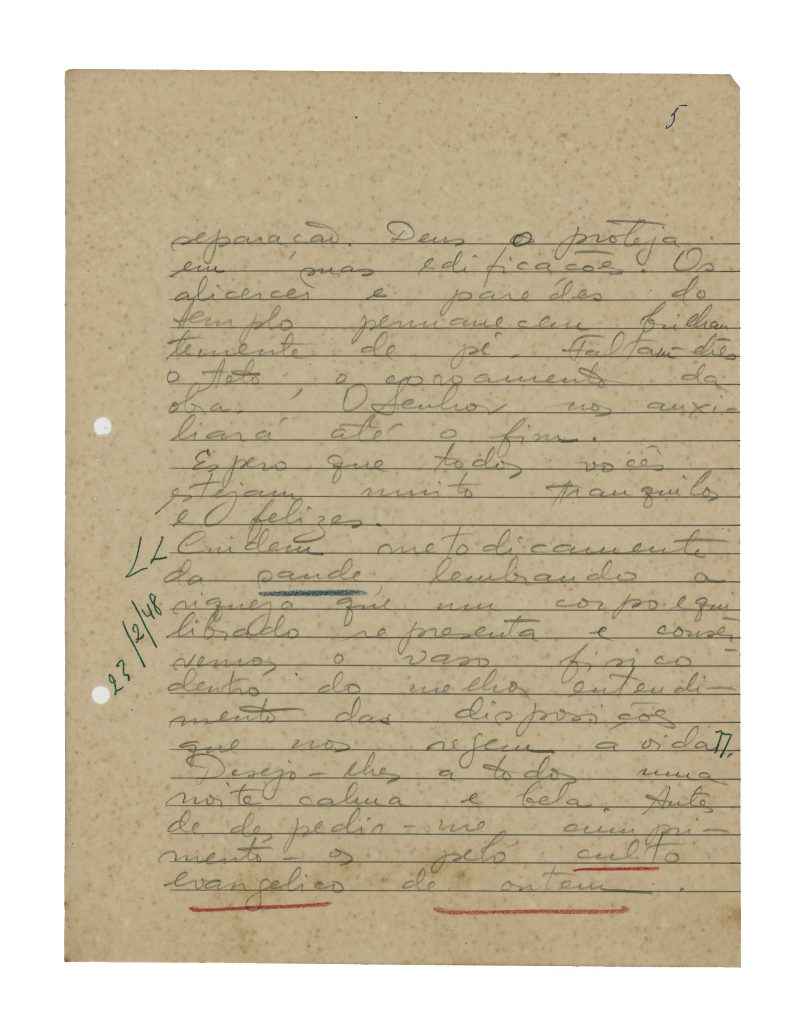 5
separacão. Deus o proteja
em suas edificacões. Os
alicerces e parédes do
templo permanecem brilhan
temente de pé. Faltam-lhes
o teto, o coroamento da
obra. O Senhor nos auxi-
liará até o fim.
Espero que todos vocês
estejam muito tranquilos
e felizes.
Cuidem metodicamente
da saude, lembrando a
riqueza que um corpo equi
librado representa e conser
vemos o vaso fisico
dentro do melhor entendi-
mento das disposicões
que nos regem a vida".
Desejo-lhes a todos uma
noite calma e bela. Antes
de despedir-me, cumpri-
mento-os pelo culto
evangelico de ontem.
23/2/48